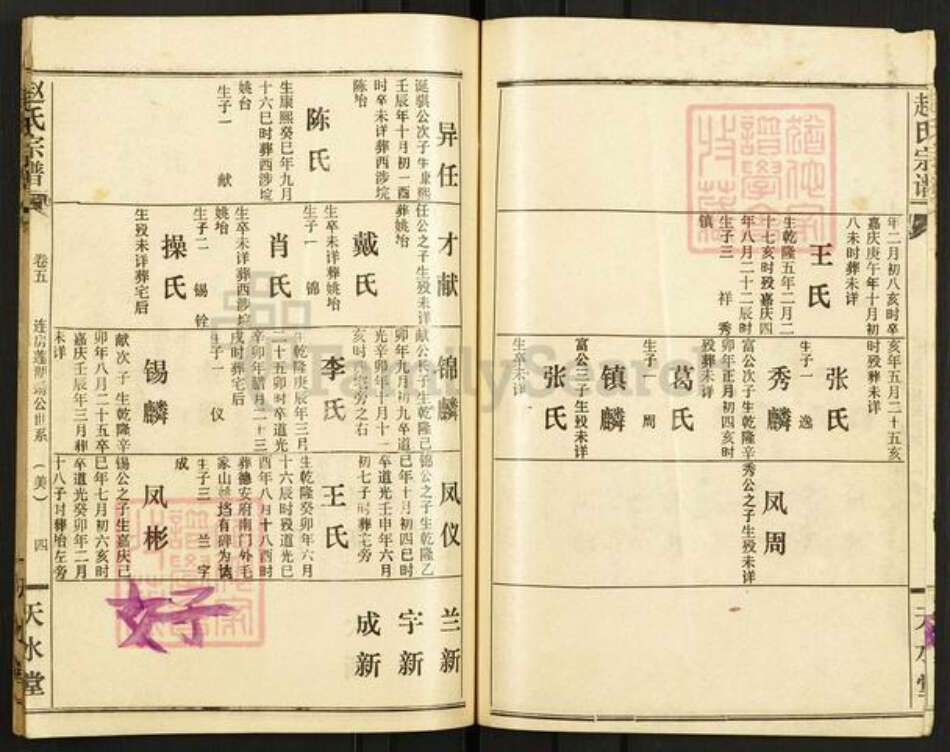 赵氏宗谱
年二月初八亥时卒
嘉庆庚午年十月初
八未时葬未详
王氏
生乾隆五年二月二
十七亥时殁嘉庆四
年八月二十二辰时
生子三 祥 秀
镇
亥年五月二十五亥
时殁葬未详
张氏
生子一 逸
秀麟
富公次子生乾隆辛
卯年正月初四亥时
殁葬未详
葛氏
生子一 周
镇麟
富公三子生殁未详
张氏
生卒未详
秀公之子生殁未详
凤周
天水堂
异任
诞骐公次子生康熙
壬辰年十月初一酉
时卒未详葬西涉垸
陈坮
陈氏
生康熙癸巳年九月
十六巳时葬西涉垸
姚台
生子一 献
才献
任公之子生殁未详
葬姚坮
戴氏
生卒未详葬姚坮
生子一 锦
肖氏
生卒未详葬西涉垸
姚坮
生子二 锡 铨
操氏
生殁未详葬宅后
锦麟
献公长子生乾隆己
卯年九月初九卒道
光辛卯年十月十一
亥时葬宅旁之右
李氏
生乾隆庚辰年三月
二十五卯时卒道光
辛卯年腊月二十三
戌时葬宅后
生子一 仪
锡麟
献次子生乾隆辛
卯年八月二十五卒
嘉庆壬辰年三月葬
未详
凤仪
锦公之子生乾隆乙
巳年十月初四巳时
卒道光壬申年六月
初七子时葬宅旁
王氏
生乾隆癸卯年六月
十六辰时殁道光巳
酉年八月十八酉时
葬德安府南门外毛
家山 垱有碑为
生子三 兰 字
成
凤彬
锡公之子生嘉庆己
巳年七月初六亥时
卒道光癸卯年二月
十八子时葬坮左旁
兰新
宇新
成新
女子
赵氏宗谱
卷五
连房蓬 公世系
(美)
四
天水堂
FamilySearch